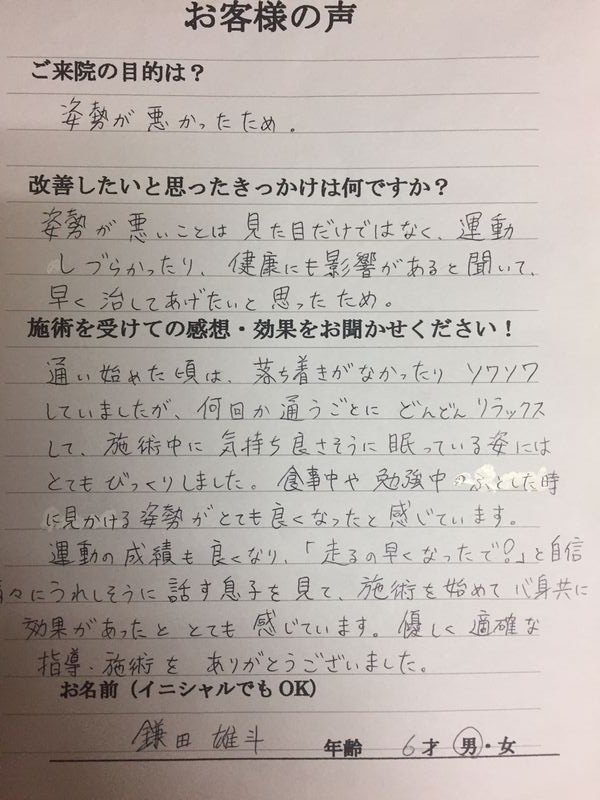 お客様の声
ご来院の目的は？
姿勢が悪かったため。
改善したいと思ったきっかけは何ですか？
姿勢が悪いことは見た目だけではなく、運動
しづらかったり、健康にも影響があると聞いて、
早く治してあげたいと思ったため。
施術を受けての感想・効果をお聞かせください！
通い始めた頃は、落ち着きがなかったりソワソワ
していましたが、何回か通うごとにどんどんリラックス
して、施術中に気持ち良さそうに眠っている姿には
とてもびっくりしました。食事中や勉強中のふとした時
に見かける姿勢がとても良くなったと感じています。
運動の成績も良くなり、「走るの早くなったで？」と自信
々にうれしそうに話す息子を見て、施術を始めて心身共に
効果があったととても感じています。優しく適確な
指導、施術をありがとうございました。
お名前（イニシャルでもOK）
鎌田雄斗 年齢 6才 男・女